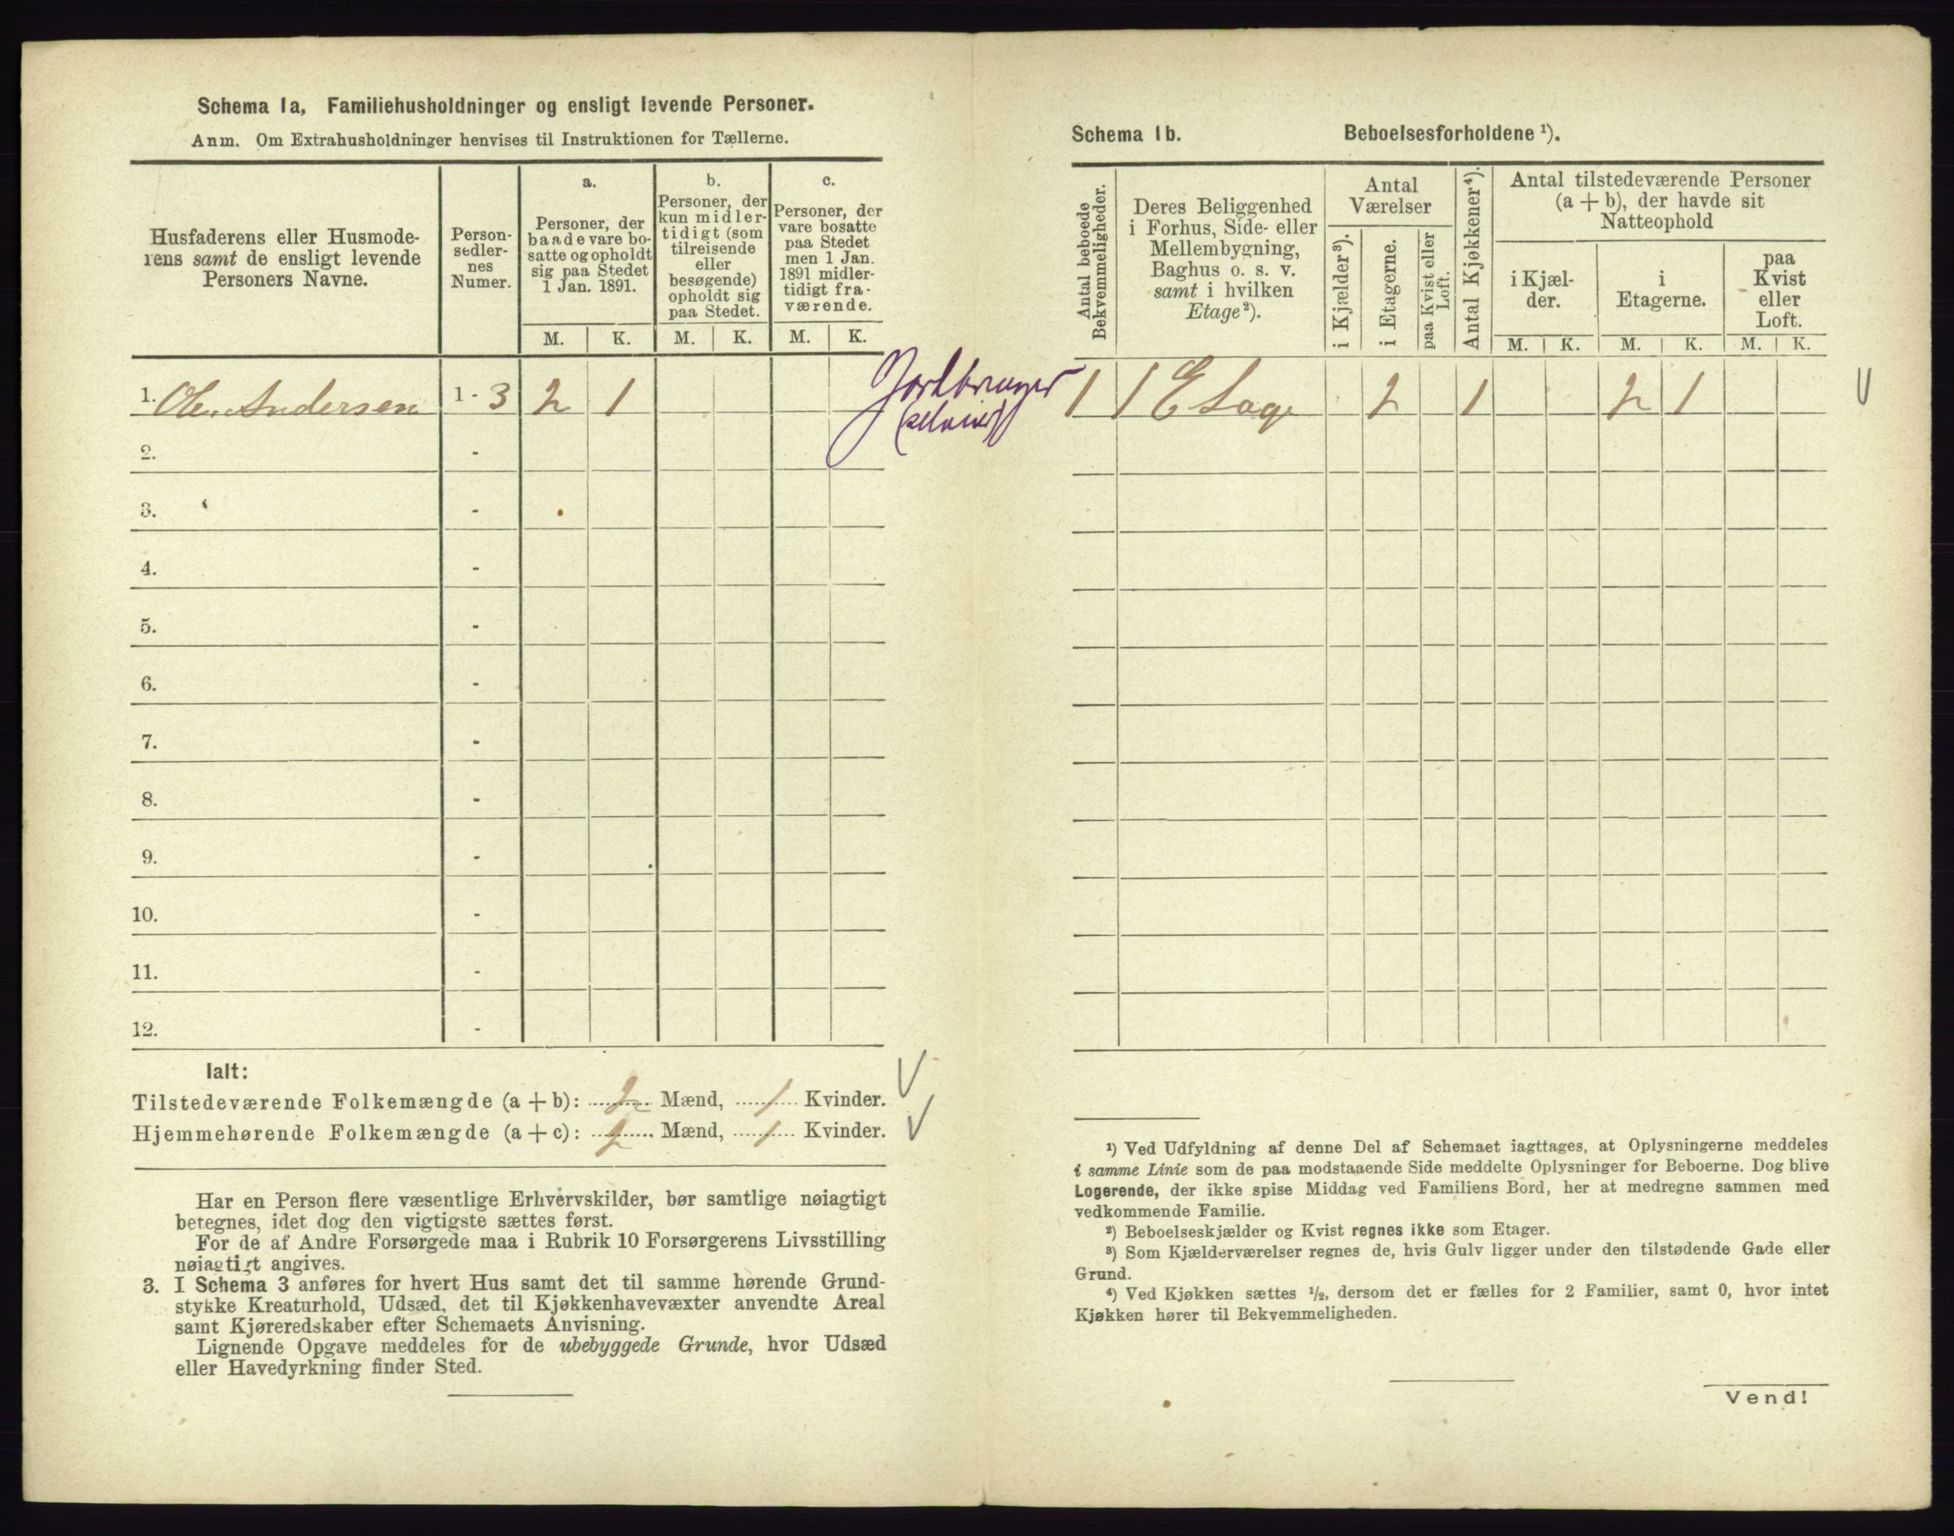 Schema 1a, Familiehusholdninger og ensligt levende Personer.
Anm. Om Extrahusholdninger henvises til Instruktionen for Tællerne.
Husfaderens eller Husmode-
rens samt de ensligt levende
Personers Navne.
Person-
sedler-
nes
Numer.
a.
Personer, der
baade vare bo-
satte og opholdt
sig paa Stedet
1 Jan. 1891.
b.
Personer, der
kun midler-
tidigt (som
tilreisende
eller
besøgende)
opholdt sig
paa Stedet.
c.
Personer, der
vare bosatte
paa Stedet
men 1 Jan.
1891 midler-
tidigt fra-
værende.
M. K. M. K. M. K.
1. Ole Andersen 1 - 3 2 1
2. -
3. -
4. -
5. -
6. -
7. -
8. -
9. -
10. -
11. -
12. -
Ialt:
Tilstedeværende Folkemængde (a + b): 2 Mænd, 1 Kvinder.
Hjemmehørende Folkemængde (a + c): 2 Mænd, 1 Kvinder.
Har en Person flere væsentlige Erhvervskilder, bør samtlige nøiagtigt
betegnes, idet dog den vigtigste sættes først.
For de af Andre Forsørgede maa i Rubrik 10 Forsørgerens Livsstilling
nøiagtigt angives.
3. I Schema 3 anføres for hvert Hus samt det til samme hørende Grund-
stykke Kreaturhold, Udsæd, det til Kjøkkenhavevæxter anvendte Areal
samt Kjøreredskaber efter Schemaets Anvisning.
Lignende Opgave meddeles for de ubebyggede Grunde, hvor Udsæd
eller Havedyrkning finder Sted.
Jordbruger
Schema 1b. Beboelsesforholdene ¹).
Antal beboede
Bekvemmeligheder.
Deres Beliggenhed
i Forhus, Side- eller
Mellembygning,
Baghus o. s. v.
samt i hvilken
Etage²).
Antal
Værelser
i Kjælder³).
i Etagerne.
paa Kvist eller
Loft.
Antal Kjøkkener⁴).
Antal tilstedeværende Personer
(a + b), der havde sit
Natteophold
i Kjæl-
der.
i
Etagerne.
paa
Kvist
eller
Loft.
M. K. M. K. M. K.
1 1 Etage 2 1 2 1
¹) Ved Udfyldning af denne Del af Schemaet iagttages, at Oplysningerne meddeles
i samme Linie som de paa modstaaende Side meddelte Oplysninger for Beboerne. Dog blive
Logerende, der ikke spise Middag ved Familiens Bord, her at medregne sammen med
vedkommende Familie.
²) Beboelseskjælder og Kvist regnes ikke som Etager.
³) Som Kjælderværelser regnes de, hvis Gulv ligger under den tilstødende Gade eller
Grund.
⁴) Ved Kjøkken sættes ½, dersom det er fælles for 2 Familier, samt 0, hvor intet
Kjøkken hører til Bekvemmeligheden.
Vend!